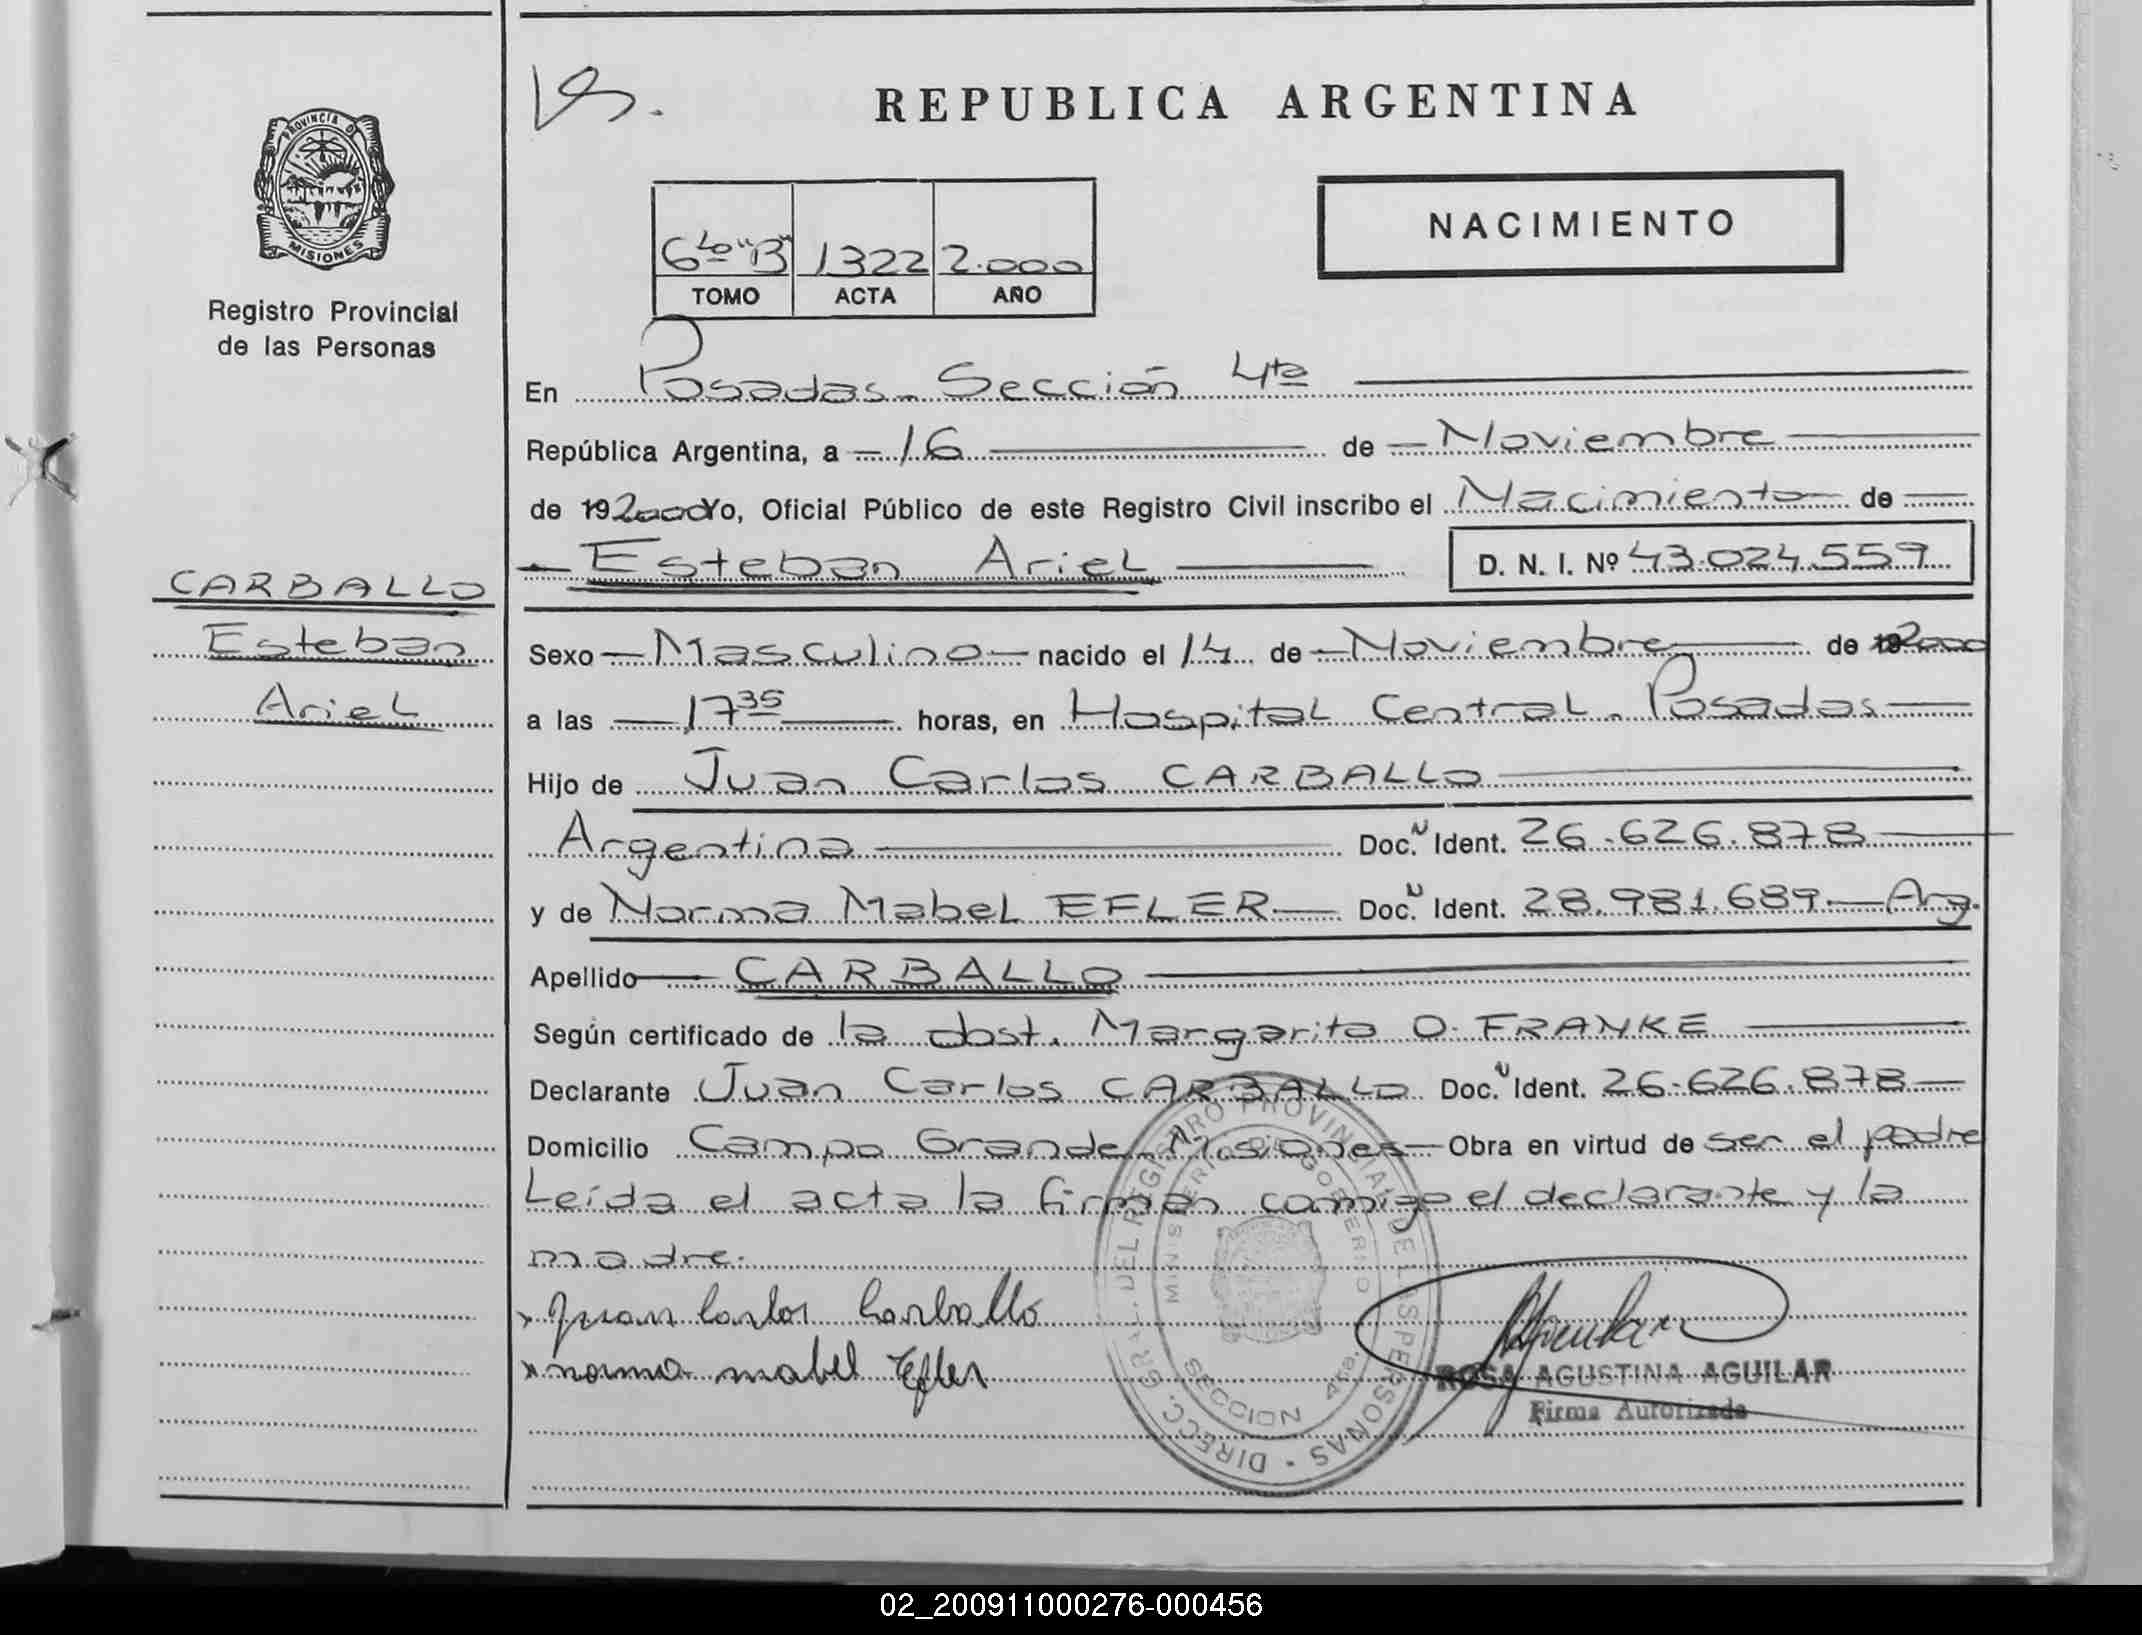 PROVINCIA DE
MISIONES
Registro Provincial
de las Personas
CARBALLO
Esteban
Ariel
REPUBLICA ARGENTINA
NACIMIENTO
6to "B" 1322 2.000
TOMO ACTA AÑO
En Posadas - Sección 4ta
República Argentina, a - 16 de - Noviembre
de 192000 Yo, Oficial Público de este Registro Civil inscribo el Nacimiento de
- Esteban Ariel D. N. I. Nº 43.024.559
Sexo - Masculino - nacido el 14 de - Noviembre de 192000
a las 17 35 horas, en Hospital Central - Posadas
Hijo de Juan Carlos CARBALLO
Argentina Doc. N Ident. 26.626.878
y de Norma Mabel EFLER Doc. N Ident. 28.981.689 - Arg.
Apellido CARBALLO
Según certificado de la obst. Margarita O. FRANKE
Declarante Juan Carlos CARBALLO Doc. N Ident. 26.626.878
Domicilio Campo Grande - Misiones - Obra en virtud de ser el padre
Leída el acta la firman conmigo el declarante y la
madre.
Juan Carlos Carballo
norma mabel Efler
DIRECC. GRAL. DEL REGISTRO PROVINCIAL DE LAS PERSONAS
MINISTERIO DE GOBIERNO
SECCION 4ta.
ROSA AGUSTINA AGUILAR
Firma Autorizada
02_200911000276-000456